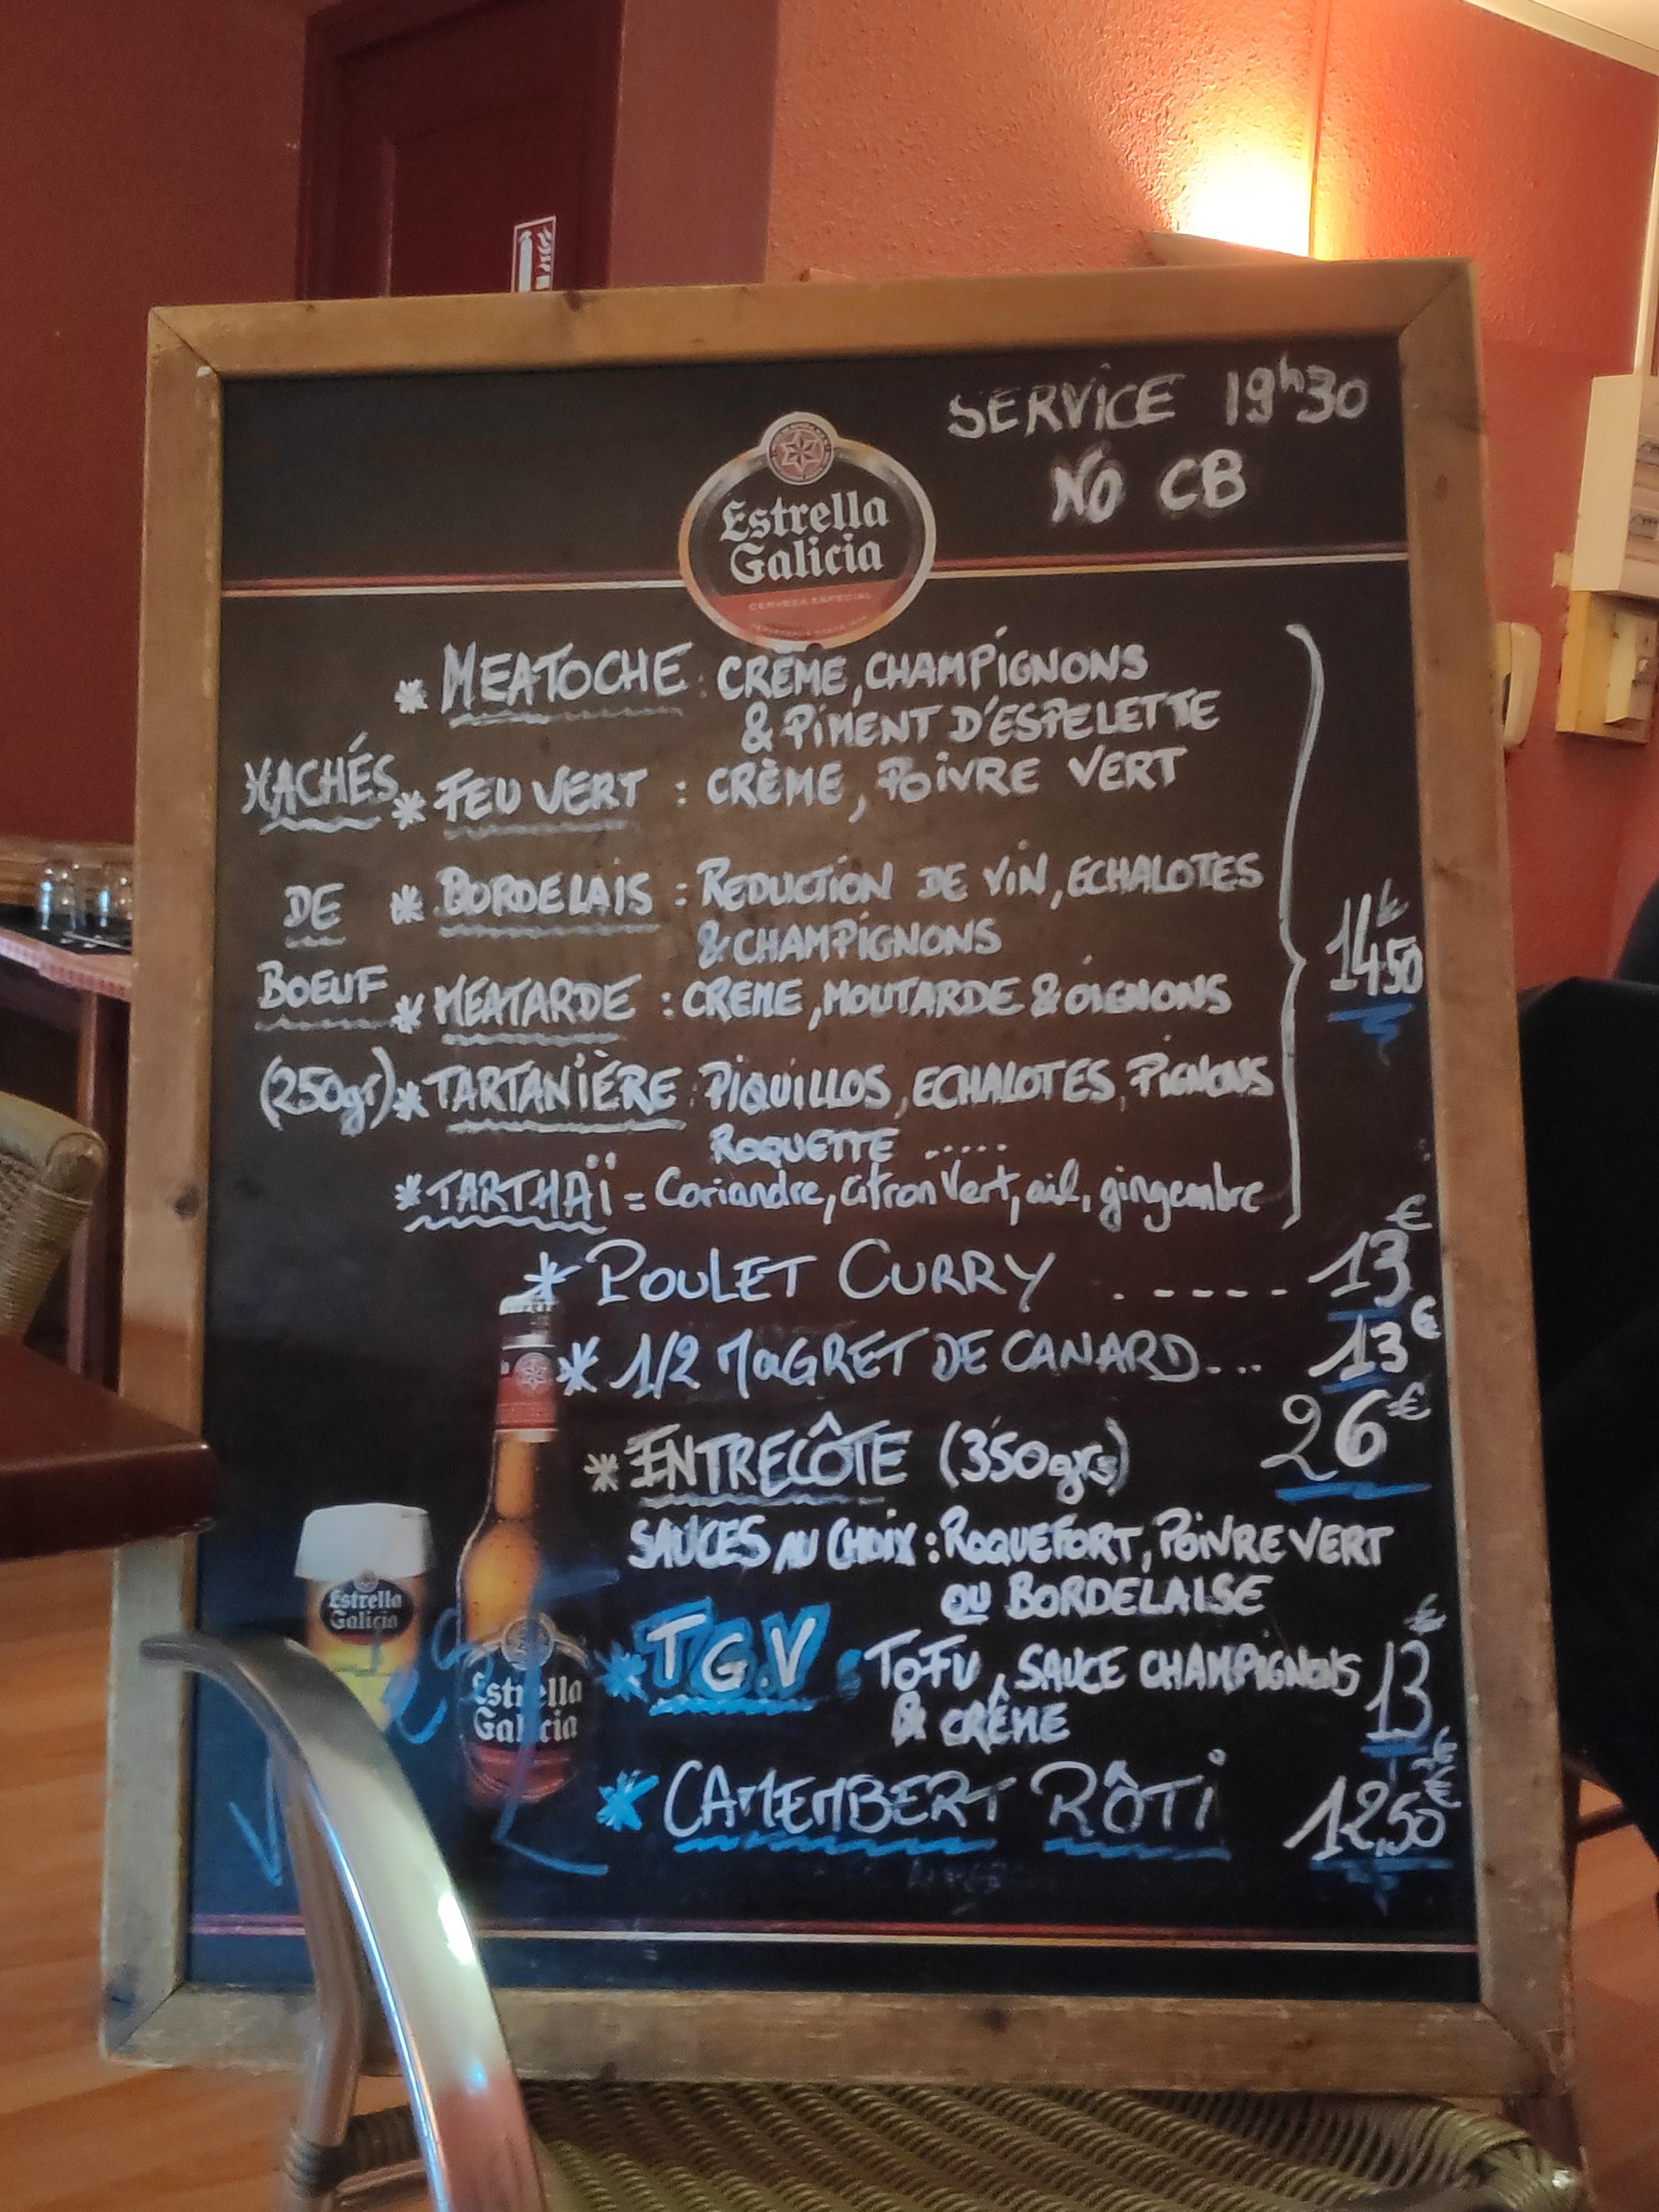 SERVICE 19h30
NO CB
Estrella
Galicia
CERVEZA ESPECIAL
* MEATOCHE : CRÈME, CHAMPIGNONS
& PIMENT D'ESPELETTE
HACHÉS * FEU VERT : CRÈME, POIVRE VERT
DE * BORDELAIS : REDUCTION DE VIN, ECHALOTES
& CHAMPIGNONS
BOEUF * MEATARDE : CREME, MOUTARDE & OIGNONS
14€50
(250gr) * TARTANIÈRE : PIQUILLOS, ECHALOTES, PIGNONS
ROQUETTE .....
* TARTHAÏ = Coriandre, citron vert, ail, gingembre
* POULET CURRY ..... 13€
* 1/2 MAGRET DE CANARD ... 13€
* ENTRECÔTE (350grs) 26€
SAUCES AU CHOIX : ROQUEFORT, POIVRE VERT
OU BORDELAISE
* T.G.V : TOFU, SAUCE CHAMPIGNONS 13€
& CRÈME
* CAMEMBERT RÔTI 12,50€
Estrella
Galicia
Estrella
Galicia